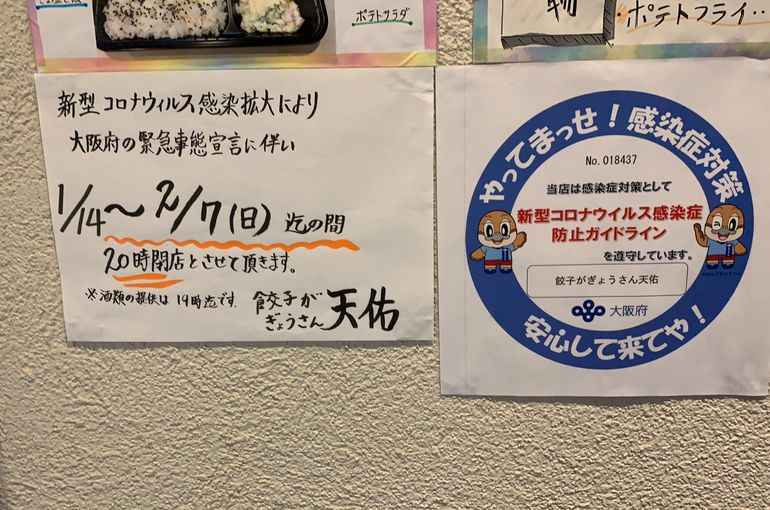 ポテトサラダ
物
ポテトフライ‥
新型コロナウィルス感染拡大により
大阪府の緊急事態宣言に伴い
1/14〜2/7(日)迄の間
20時閉店とさせて頂きます。
※酒類の提供は19時迄です.
餃子が
ぎょうさん 天佑
やってまっせ！感染症対策
No. 018437
当店は感染症対策として
新型コロナウイルス感染症
防止ガイドライン
を遵守しています。
餃子がぎょうさん天佑
大阪府
安心して来てや！